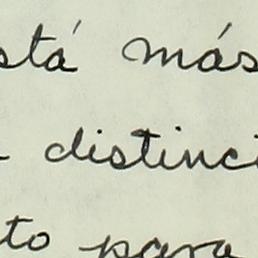 stá más
distinci
to para